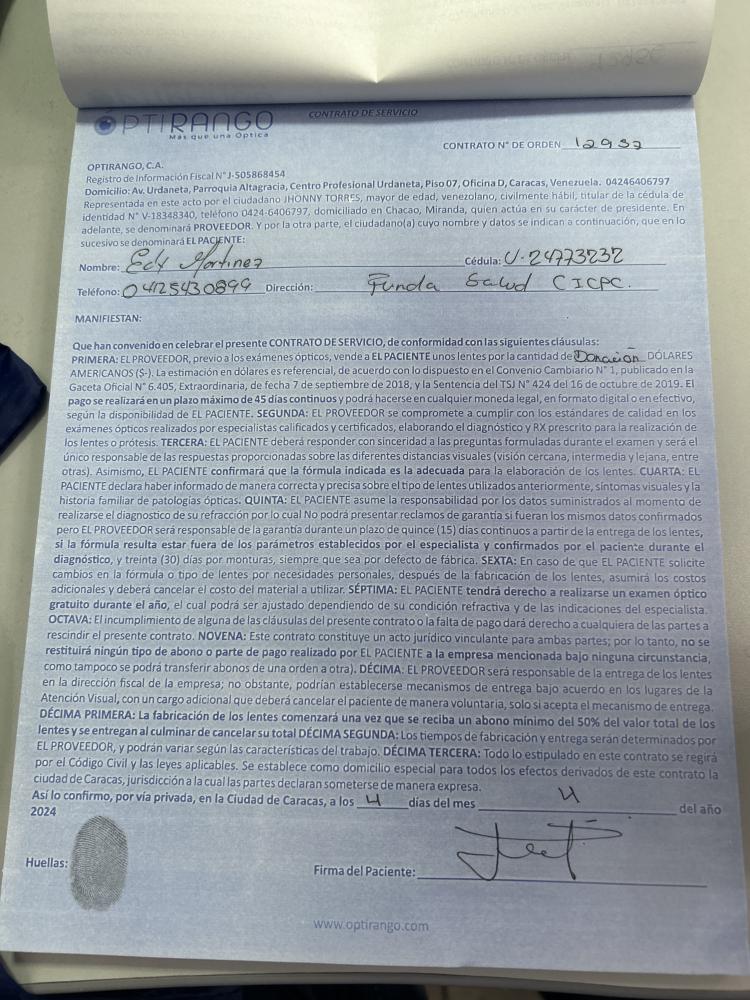 OPTIRANGO
Más que una Óptica
CONTRATO DE SERVICIO
CONTRATO N° DE ORDEN 12932
OPTIRANGO, C.A.
Registro de Información Fiscal N° J-505868454
Domicilio: Av. Urdaneta, Parroquia Altagracia, Centro Profesional Urdaneta, Piso 07, Oficina D, Caracas, Venezuela. 04246406797
Representada en este acto por el ciudadano JHONNY TORRES, mayor de edad, venezolano, civilmente hábil, titular de la cédula de
identidad N° V-18348340, teléfono 0424-6406797, domiciliado en Chacao, Miranda, quien actúa en su carácter de presidente. En
adelante, se denominará PROVEEDOR. Y por la otra parte, el ciudadano(a) cuyo nombre y datos se indican a continuación, que en lo
sucesivo se denominará EL PACIENTE:
Nombre: Edy Martinez Cédula: V-24773232
Teléfono: 04125430899 Dirección: Funda Salud CICPC.
MANIFIESTAN:
Que han convenido en celebrar el presente CONTRATO DE SERVICIO, de conformidad con las siguientes cláusulas:
PRIMERA: EL PROVEEDOR, previo a los exámenes ópticos, vende a EL PACIENTE unos lentes por la cantidad de Donación DÓLARES
AMERICANOS ($-). La estimación en dólares es referencial, de acuerdo con lo dispuesto en el Convenio Cambiario N° 1, publicado en la
Gaceta Oficial N° 6.405, Extraordinaria, de fecha 7 de septiembre de 2018, y la Sentencia del TSJ N° 424 del 16 de octubre de 2019. El
pago se realizará en un plazo máximo de 45 días continuos y podrá hacerse en cualquier moneda legal, en formato digital o en efectivo,
según la disponibilidad de EL PACIENTE. SEGUNDA: EL PROVEEDOR se compromete a cumplir con los estándares de calidad en los
exámenes ópticos realizados por especialistas calificados y certificados, elaborando el diagnóstico y RX prescrito para la realización de
los lentes o prótesis. TERCERA: EL PACIENTE deberá responder con sinceridad a las preguntas formuladas durante el examen y será el
único responsable de las respuestas proporcionadas sobre las diferentes distancias visuales (visión cercana, intermedia y lejana, entre
otras). Asimismo, EL PACIENTE confirmará que la fórmula indicada es la adecuada para la elaboración de los lentes. CUARTA: EL
PACIENTE declara haber informado de manera correcta y precisa sobre el tipo de lentes utilizados anteriormente, síntomas visuales y la
historia familiar de patologías ópticas. QUINTA: EL PACIENTE asume la responsabilidad por los datos suministrados al momento de
realizarse el diagnostico de su refracción por lo cual No podrá presentar reclamos de garantía si fueran los mismos datos confirmados
pero EL PROVEEDOR será responsable de la garantía durante un plazo de quince (15) días continuos a partir de la entrega de los lentes,
si la fórmula resulta estar fuera de los parámetros establecidos por el especialista y confirmados por el paciente durante el
diagnóstico, y treinta (30) días por monturas, siempre que sea por defecto de fábrica. SEXTA: En caso de que EL PACIENTE solicite
cambios en la fórmula o tipo de lentes por necesidades personales, después de la fabricación de los lentes, asumirá los costos
adicionales y deberá cancelar el costo del material a utilizar. SÉPTIMA: EL PACIENTE tendrá derecho a realizarse un examen óptico
gratuito durante el año, el cual podrá ser ajustado dependiendo de su condición refractiva y de las indicaciones del especialista.
OCTAVA: El incumplimiento de alguna de las cláusulas del presente contrato o la falta de pago dará derecho a cualquiera de las partes a
rescindir el presente contrato. NOVENA: Este contrato constituye un acto jurídico vinculante para ambas partes; por lo tanto, no se
restituirá ningún tipo de abono o parte de pago realizado por EL PACIENTE a la empresa mencionada bajo ninguna circunstancia,
como tampoco se podrá transferir abonos de una orden a otra). DÉCIMA: EL PROVEEDOR será responsable de la entrega de los lentes
en la dirección fiscal de la empresa; no obstante, podrían establecerse mecanismos de entrega bajo acuerdo en los lugares de la
Atención Visual, con un cargo adicional que deberá cancelar el paciente de manera voluntaria, solo si acepta el mecanismo de entrega.
DÉCIMA PRIMERA: La fabricación de los lentes comenzará una vez que se reciba un abono mínimo del 50% del valor total de los
lentes y se entregan al culminar de cancelar su total DÉCIMA SEGUNDA: Los tiempos de fabricación y entrega serán determinados por
EL PROVEEDOR, y podrán variar según las características del trabajo. DÉCIMA TERCERA: Todo lo estipulado en este contrato se regirá
por el Código Civil y las leyes aplicables. Se establece como domicilio especial para todos los efectos derivados de este contrato la
ciudad de Caracas, jurisdicción a la cual las partes declaran someterse de manera expresa.
Así lo confirmo, por vía privada, en la Ciudad de Caracas, a los 4 días del mes 4 del año
2024
Huellas:
Firma del Paciente:
www.optirango.com